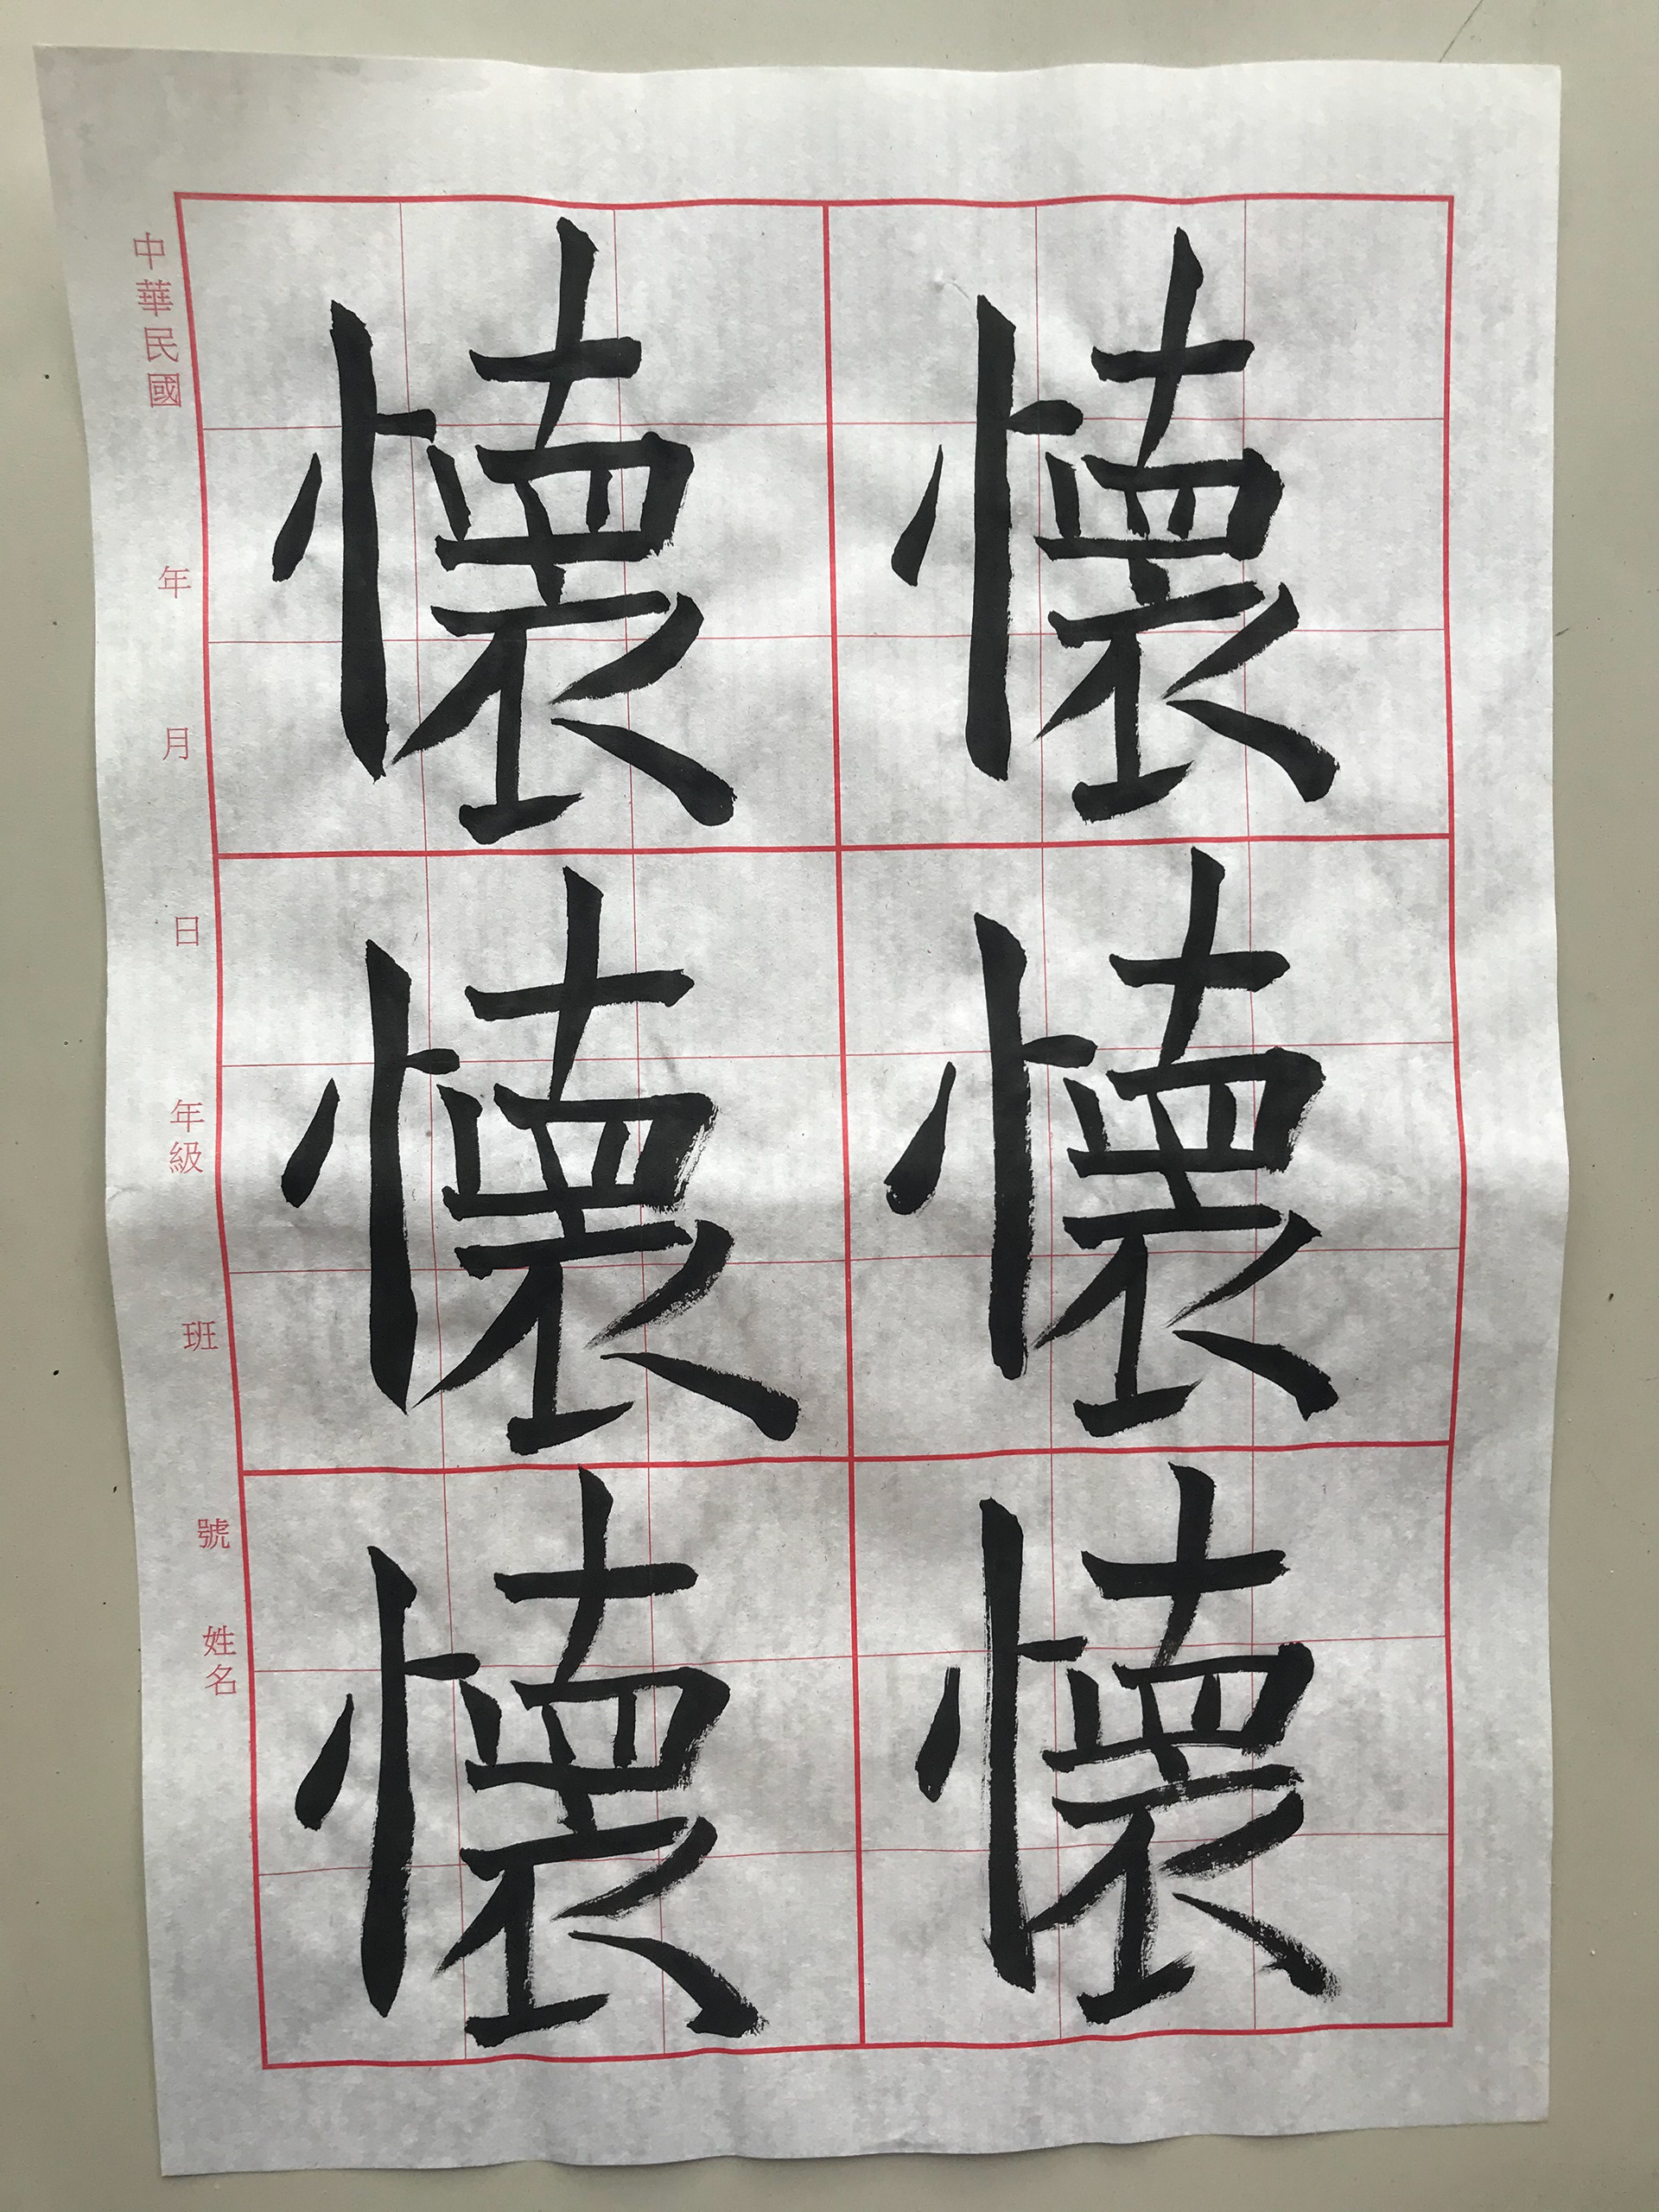 懷懷懷
懷懷懷
中華民國 年 月 日 年級 班 號 姓名